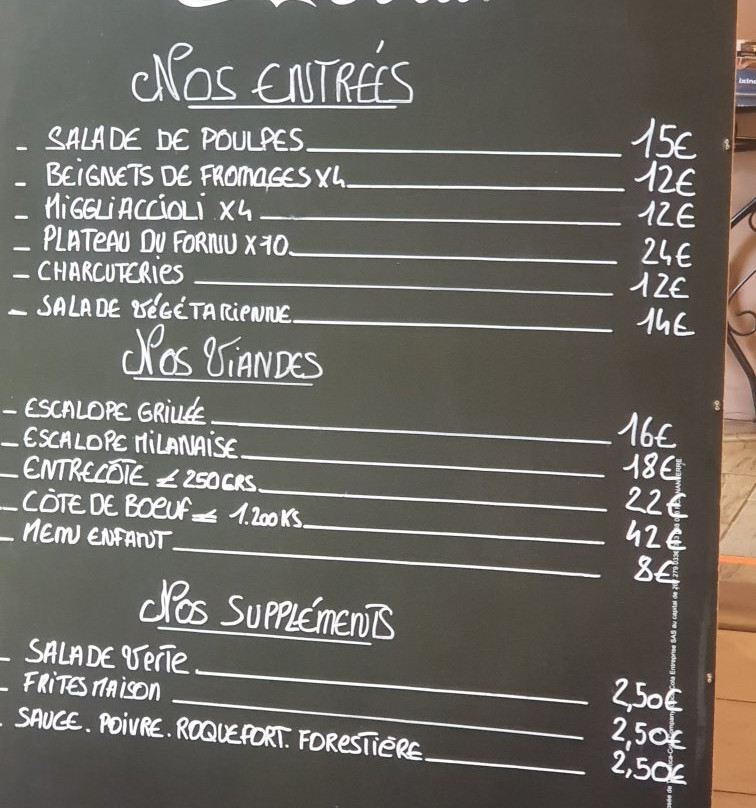 NOS ENTRÉES
- SALADE DE POULPES 15€
- BEIGNETS DE FROMAGES X4 12€
- MIGGLIACCIOLI X4 12€
- PLATEAU DU FORNU X10 24€
- CHARCUTERIES 12€
- SALADE VÉGÉTARIENNE 14€
NOS VIANDES
- ESCALOPE GRILLÉE 16€
- ESCALOPE MILANAISE 18€
- ENTRECÔTE ≤ 250GRS 22€
- CÔTE DE BOEUF ≤ 1.200KS 42€
- MENU ENFANT 8€
NOS SUPPLÉMENTS
- SALADE VERTE 2,50€
- FRITES MAISON 2,50€
- SAUCE. POIVRE. ROQUEFORT. FORESTIÈRE 2,50€